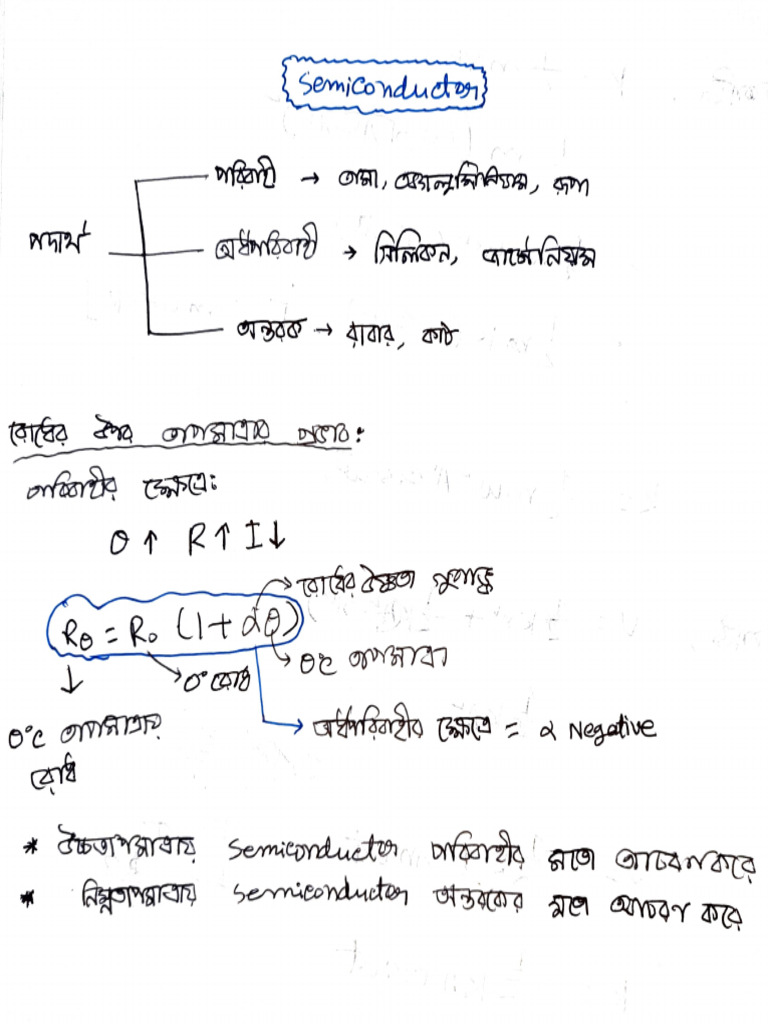 Semiconductor
পরিবাহী → তামা, অ্যালুমিনিয়াম, রূপা
পদার্থ
অর্ধপরিবাহী → সিলিকন, জার্মেনিয়াম
অন্তরক → রাবার, কাঠ
রোধের উপর তাপমাত্রার প্রভাব:
পরিবাহীর ক্ষেত্রে:
θ ↑ R ↑ I ↓
→ রোধের উষ্ণতা গুণাঙ্ক
Rθ = R₀ (1 + αθ)
→ θ°C তাপমাত্রা
↓ → 0° রোধ
θ°C তাপমাত্রায়
রোধ
→ অর্ধপরিবাহীর ক্ষেত্রে = α Negative
* উচ্চতাপমাত্রায় Semiconductor পরিবাহীর মতো আচরণ করে
* নিম্নতাপমাত্রায় Semiconductor অন্তরকের মতো আচরণ করে